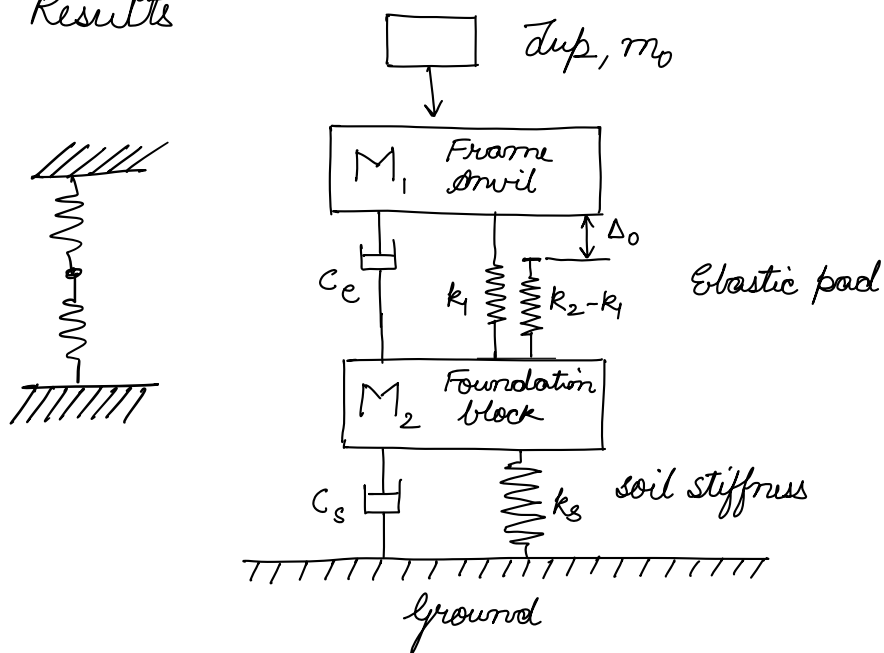 Results
Tup, m₀
M₁ Frame
Anvil
Δ₀
Cₑ
k₁
k₂-k₁
Elastic pad
M₂ Foundation
block
Cₛ
kₛ
soil stiffness
Ground